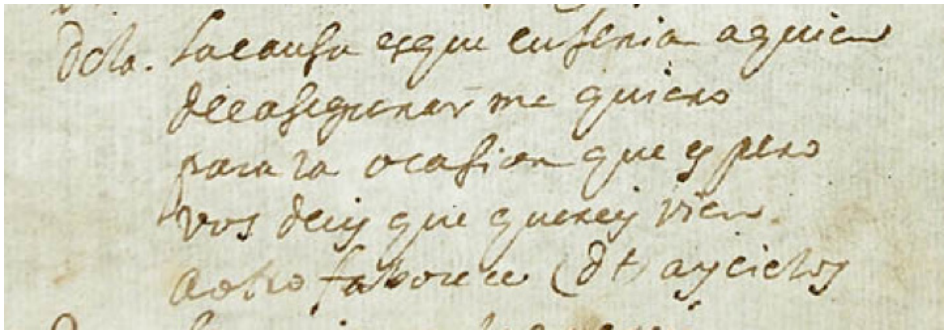 dcla. la causa es que eufenia a quien
de casegurar me quiero
para la ocasion que espero
vos decis que quereis vien.
a otro faborece (dt) ay cielos